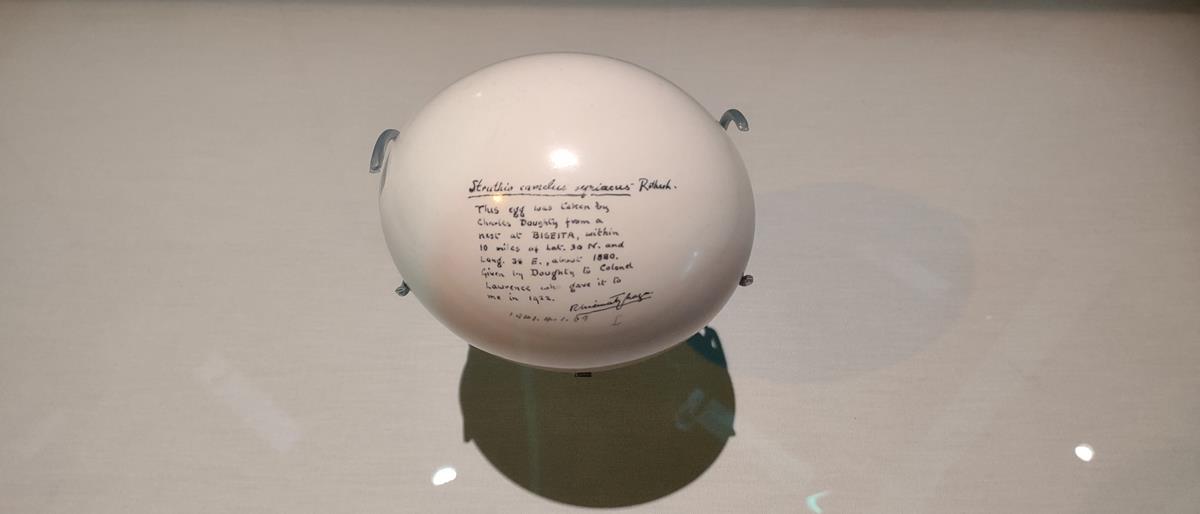 Struthio camelus syriacus Rothsch.
This egg was taken by
Charles Doughty from a
nest at BISEITA, within
10 miles of Lat. 30 N. and
Long. 38 E., about 1880.
Given by Doughty to Colonel
Lawrence who gave it to
me in 1922.